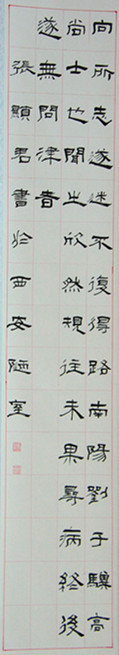 向所志遂迷不復得路南陽劉子驥高
尚士也聞之欣然規往未果尋病終後
遂無問津者
張顯君書於西安陋室